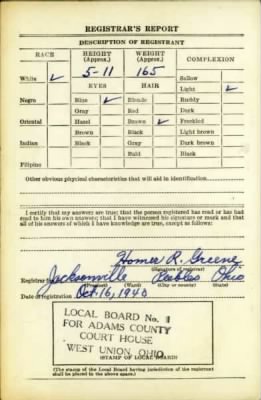 REGISTRAR'S REPORT
DESCRIPTION OF REGISTRANT
RACE HEIGHT (Approx.) WEIGHT (Approx.) COMPLEXION
White ✓ 5-11 165 Sallow
EYES HAIR Light ✓
Negro Blue ✓ Blonde Ruddy
Gray Red Dark
Oriental Hazel Brown ✓ Freckled
Brown Black Light brown
Indian Black Gray Dark brown
Bald Black
Filipino
Other obvious physical characteristics that will aid in identification
I certify that my answers are true; that the person registered has read or has had
read to him his own answers; that I have witnessed his signature or mark and that
all of his answers of which I have knowledge are true, except as follows:
Homer R. Greene
(Signature of registrar)
Registrar for Jacksonville Peebles Ohio
(Precinct) (Ward) (City or county) (State)
Date of registration Oct. 16, 1940
LOCAL BOARD No. 1
FOR ADAMS COUNTY
COURT HOUSE
WEST UNION, OHIO
(STAMP OF LOCAL BOARD)
(The stamp of the Local Board having jurisdiction of the registrant
shall be placed in the above space.)